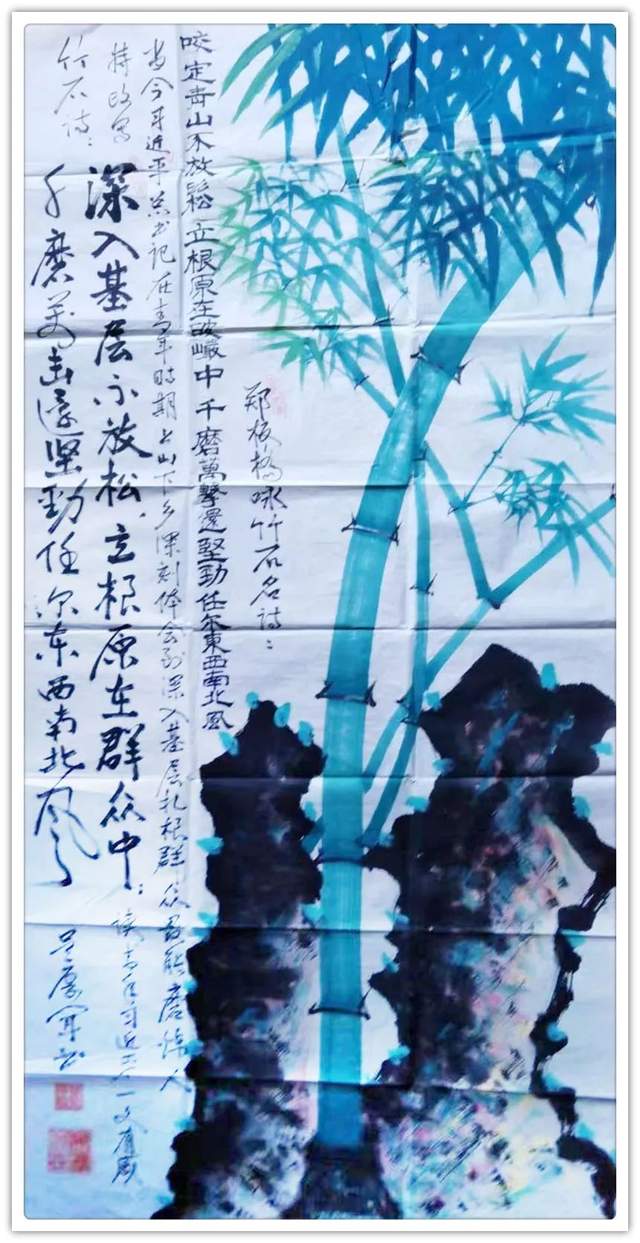 郑板橋咏竹石名诗：
咬定青山不放鬆立根原在破巖中千磨萬擊還堅勁任尔東西南北風
当今习近平总书记在青年时期上山下乡深刻体会到深入基层扎根群众最能磨人
特改写
竹石诗：
深入基层不放松，立根原在群众中；
读青年习近平一文有感
千磨万击还坚劲任尔东西南北风